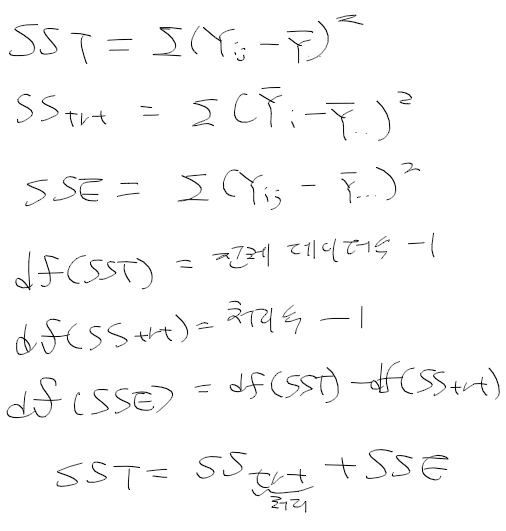 SST = Σ(Yij - Y̅)²
SStrt = Σ(Y̅i - Y̅..)²
SSE = Σ(Yij - Y̅...)²
df(SST) = 전체 데이터수 -1
df(SStrt) = 처리수 -1
df(SSE) = df(SST) - df(SStrt)
SST = SStrt + SSE
처리